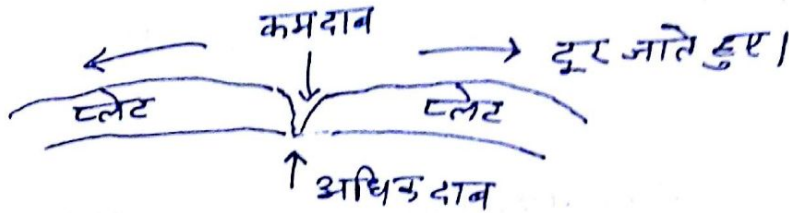 कम दाब
दूर जाते हुए।
प्लेट
प्लेट
अधिक दाब